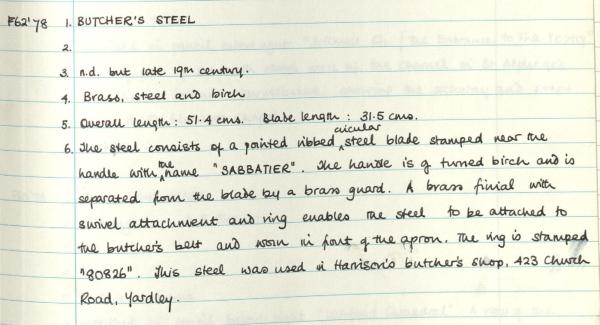 F62'78 1. BUTCHER'S STEEL
2.
3. n.d. but late 19th century.
4. Brass, steel and birch
5. Overall length: 51.4 cms. Blade length: 31.5 cms.
6. The steel consists of a pointed ribbed circular steel blade stamped near the
handle with the name "SABBATIER". The handle is of turned birch and is
separated from the blade by a brass guard. A brass finial with
swivel attachment and ring enables the steel to be attached to
the butcher's belt and worn in front of the apron. The ring is stamped
"80826". This steel was used in Harrison's butcher's shop, 423 Church
Road, Yardley.